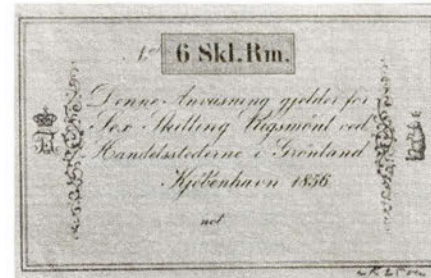 6 Skl. Rm.
Denne Anvisning gjelder for
Sex Skilling Rigsmönt ved
Handelsstederne i Grönland
Kjöbenhavn 1856
not